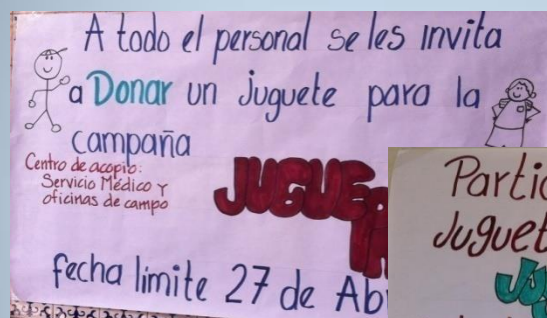 A todo el personal se les invita
a Donar un juguete para la
campaña
Centro de acopio:
Servicio Médico y
oficinas de campo
fecha límite 27 de Ab
Partic
Juguet